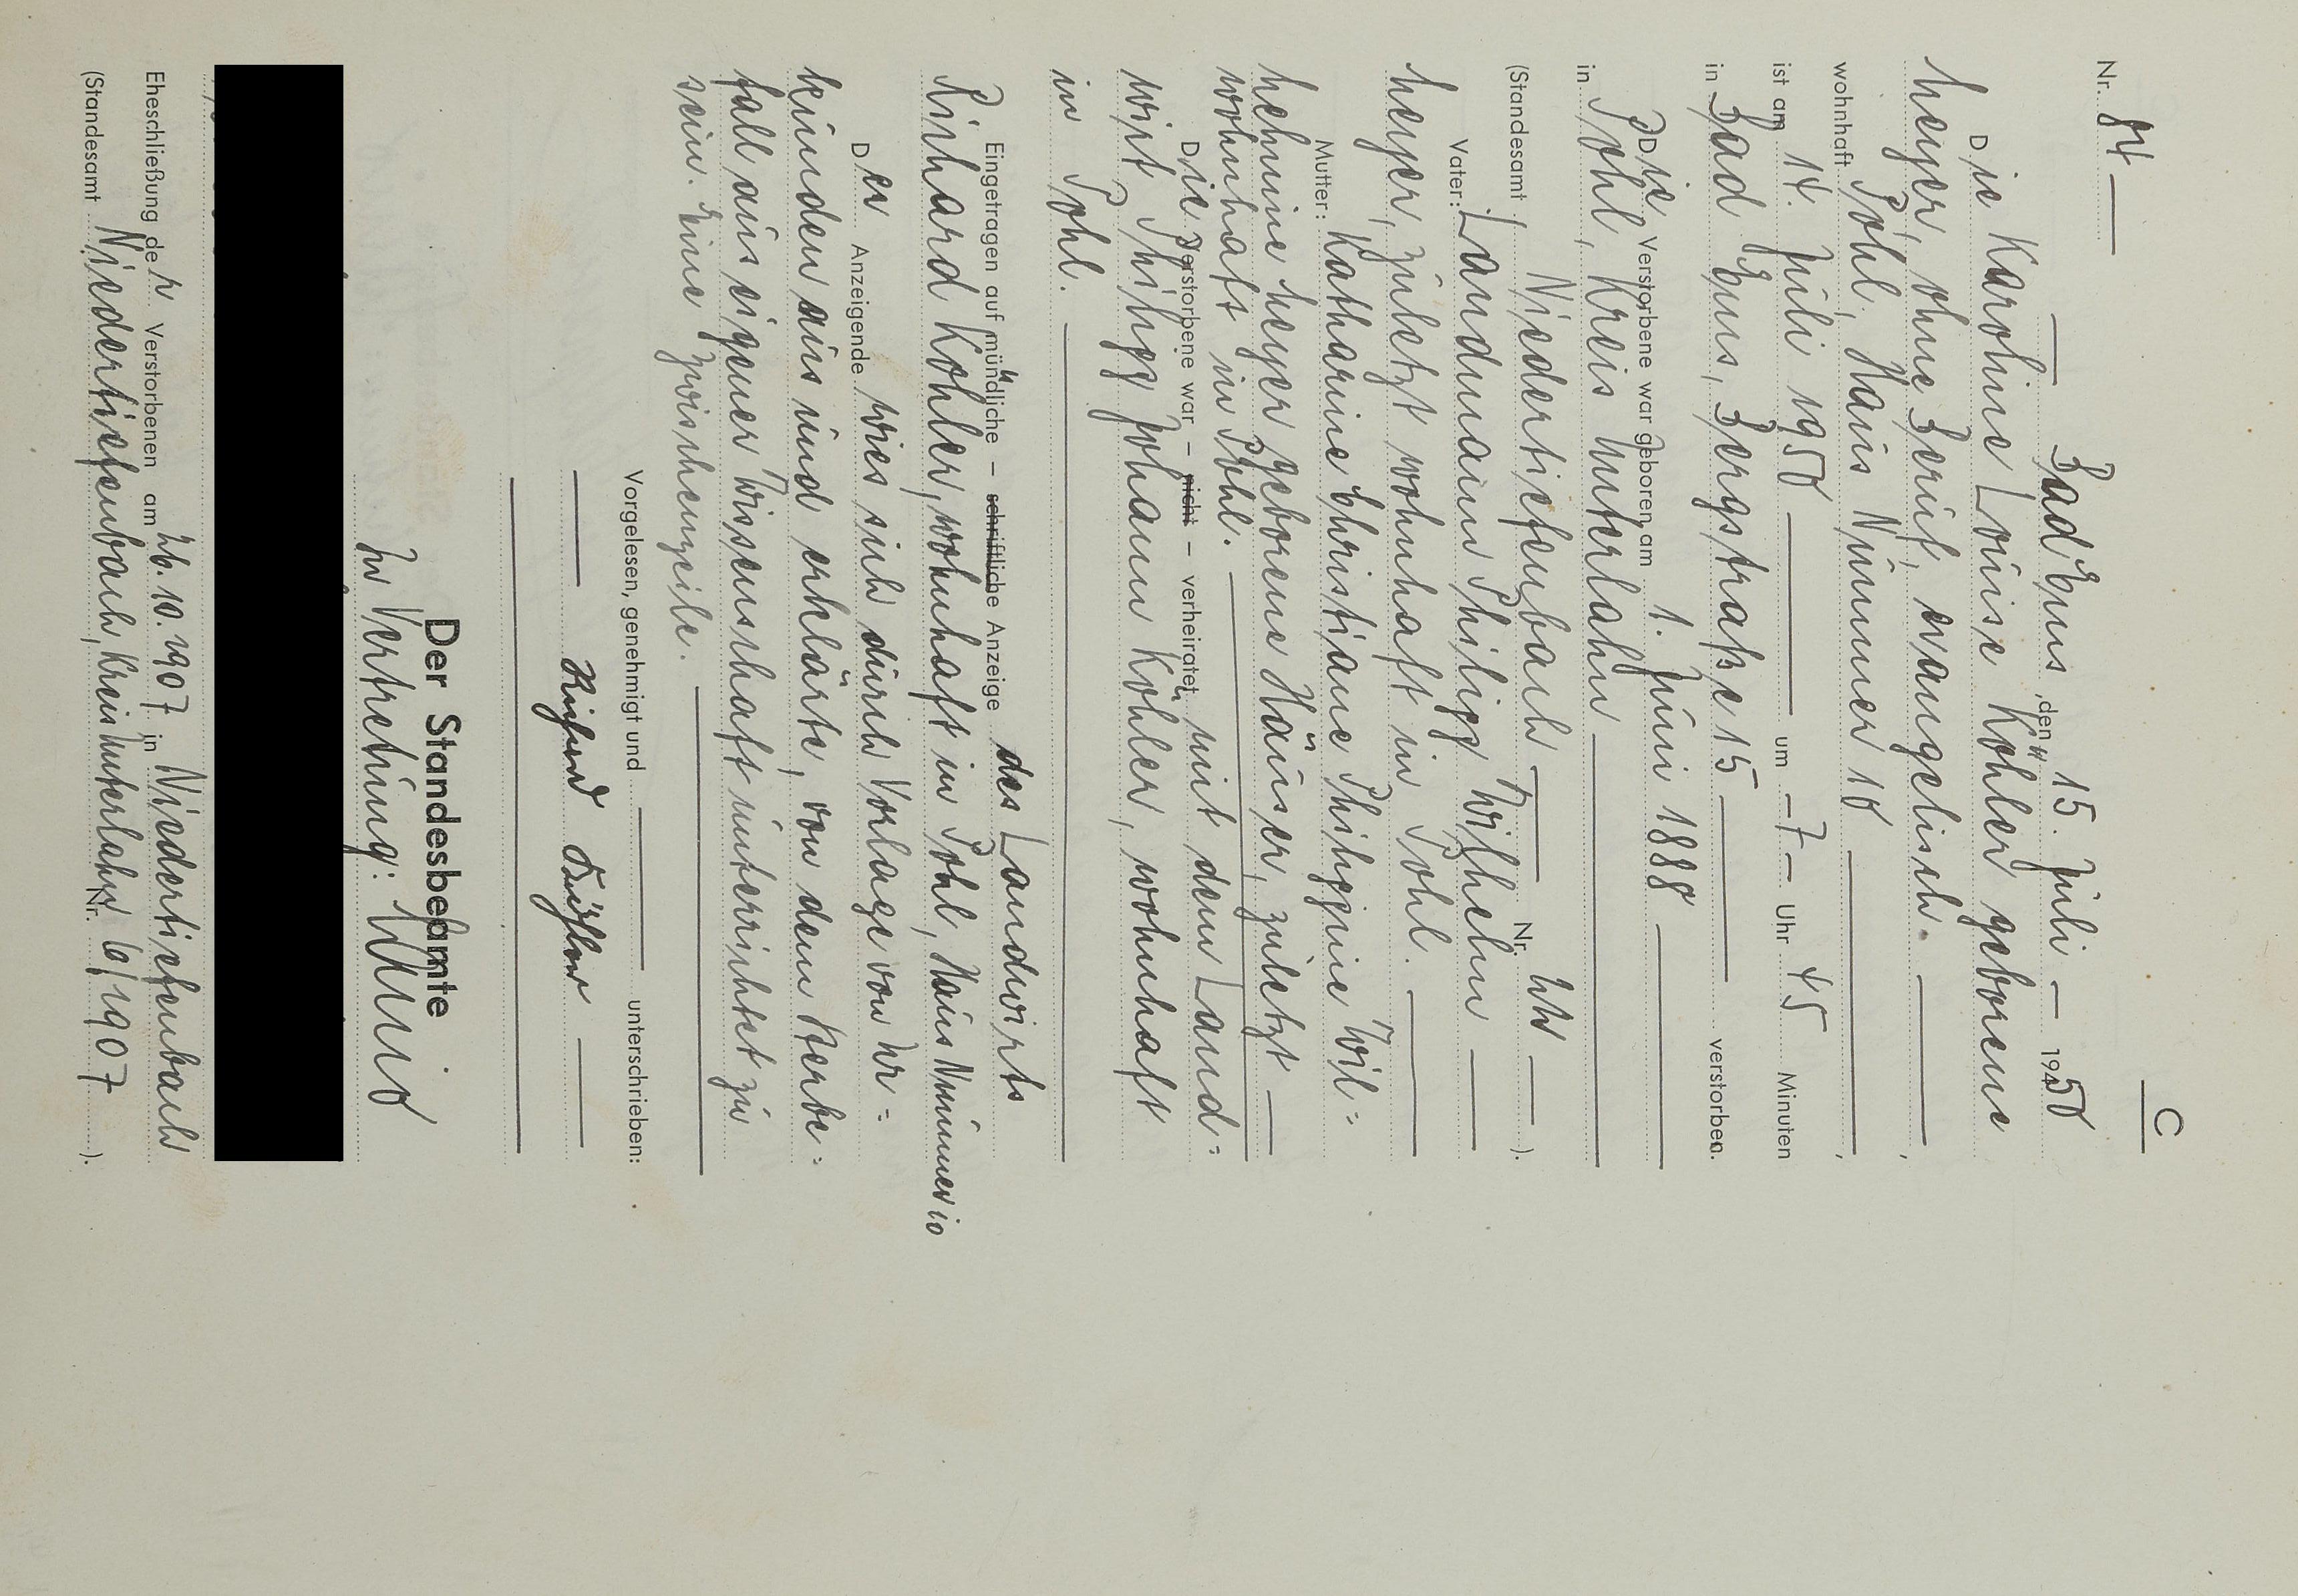 C
Nr. 84
Bad Ems, den 15. Juli 1950
Die Karoline Louise Köhler geborene
Meyer, ohne Beruf, evangelisch,
wohnhaft Pohl, Haus Nummer 10,
ist am 14. Juli 1950 um 7 Uhr 45 Minuten
in Bad Ems, Bergstraße 15 verstorben.
Die Verstorbene war geboren am 1. Juni 1888
in Pohl, Kreis Unterlahn
(Standesamt Niedertiefenbach Nr. ).
Vater: Landmann Philipp Wilhelm
Meyer, zuletzt wohnhaft in Pohl.
Mutter: Katharine Christiane Philippine Wil=
helmine Meyer geborene Häuser, zuletzt
wohnhaft in Pohl.
Die Verstorbene war – nicht – verheiratet mit dem Land=
wirt Philipp Johann Köhler, wohnhaft
in Pohl.
Eingetragen auf mündliche – schriftliche Anzeige des Landwirts
Richard Köhler, wohnhaft in Pohl, Haus Nummer 10
Der Anzeigende wies sich durch Vorlage von Ur=
kunden aus und erklärte, von dem Sterbe=
fall aus eigener Wissenschaft unterrichtet zu
sein. Eine Zwischenzeile.
Vorgelesen, genehmigt und unterschrieben:
Richard Köhler
Der Standesbeamte
In Vertretung:
Eheschließung der Verstorbenen am 26.10.1907 in Niedertiefenbach
(Standesamt Niedertiefenbach, Kreis Unterlahn Nr. 6/1907).